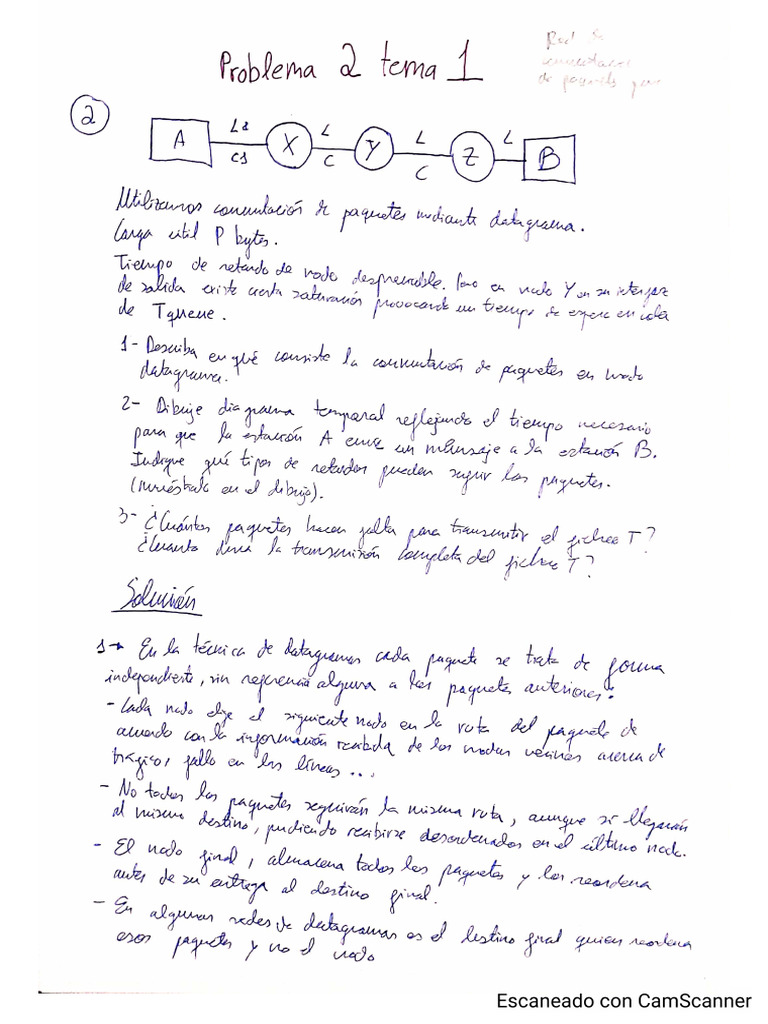 Problema 2 tema 1
Red de
conmutación
de paquetes
2
A L1 X L Y L Z L B
C1 C C
Utilizamos conmutación de paquetes mediante datagrama.
Carga útil P bytes.
Tiempo de retardo de nodo despreciable. Pero en nodo Y en su interfaz
de salida existe cierta saturación provocando un tiempo de espera en cola
de Tqueue.
1- Describa en qué consiste la conmutación de paquetes en modo
datagrama.
2- Dibuje diagrama temporal reflejando el tiempo necesario
para que la estación A envíe un mensaje a la estación B.
Indique qué tipos de retardos pueden seguir los paquetes.
(muéstralo en el dibujo).
3- ¿Cuántos paquetes hacen falta para transmitir el fichero T?
¿Cuánto dura la transmisión completa del fichero T?
Solución
1→ En la técnica de datagramas cada paquete se trata de forma
independiente, sin referencia alguna a los paquetes anteriores:
- Cada nodo elige el siguiente nodo en la ruta del paquete de
acuerdo con la información recibida de los nodos vecinos acerca de
tráfico, fallo en las líneas...
- No todos los paquetes seguirán la misma ruta, aunque si llegarán
al mismo destino, pudiendo recibirse desordenados en el último nodo.
- El nodo final, almacena todos los paquetes y los reordena
antes de su entrega al destino final.
- En algunas redes de datagramas es el destino final quien reordena
esos paquetes y no el nodo
Escaneado con CamScanner